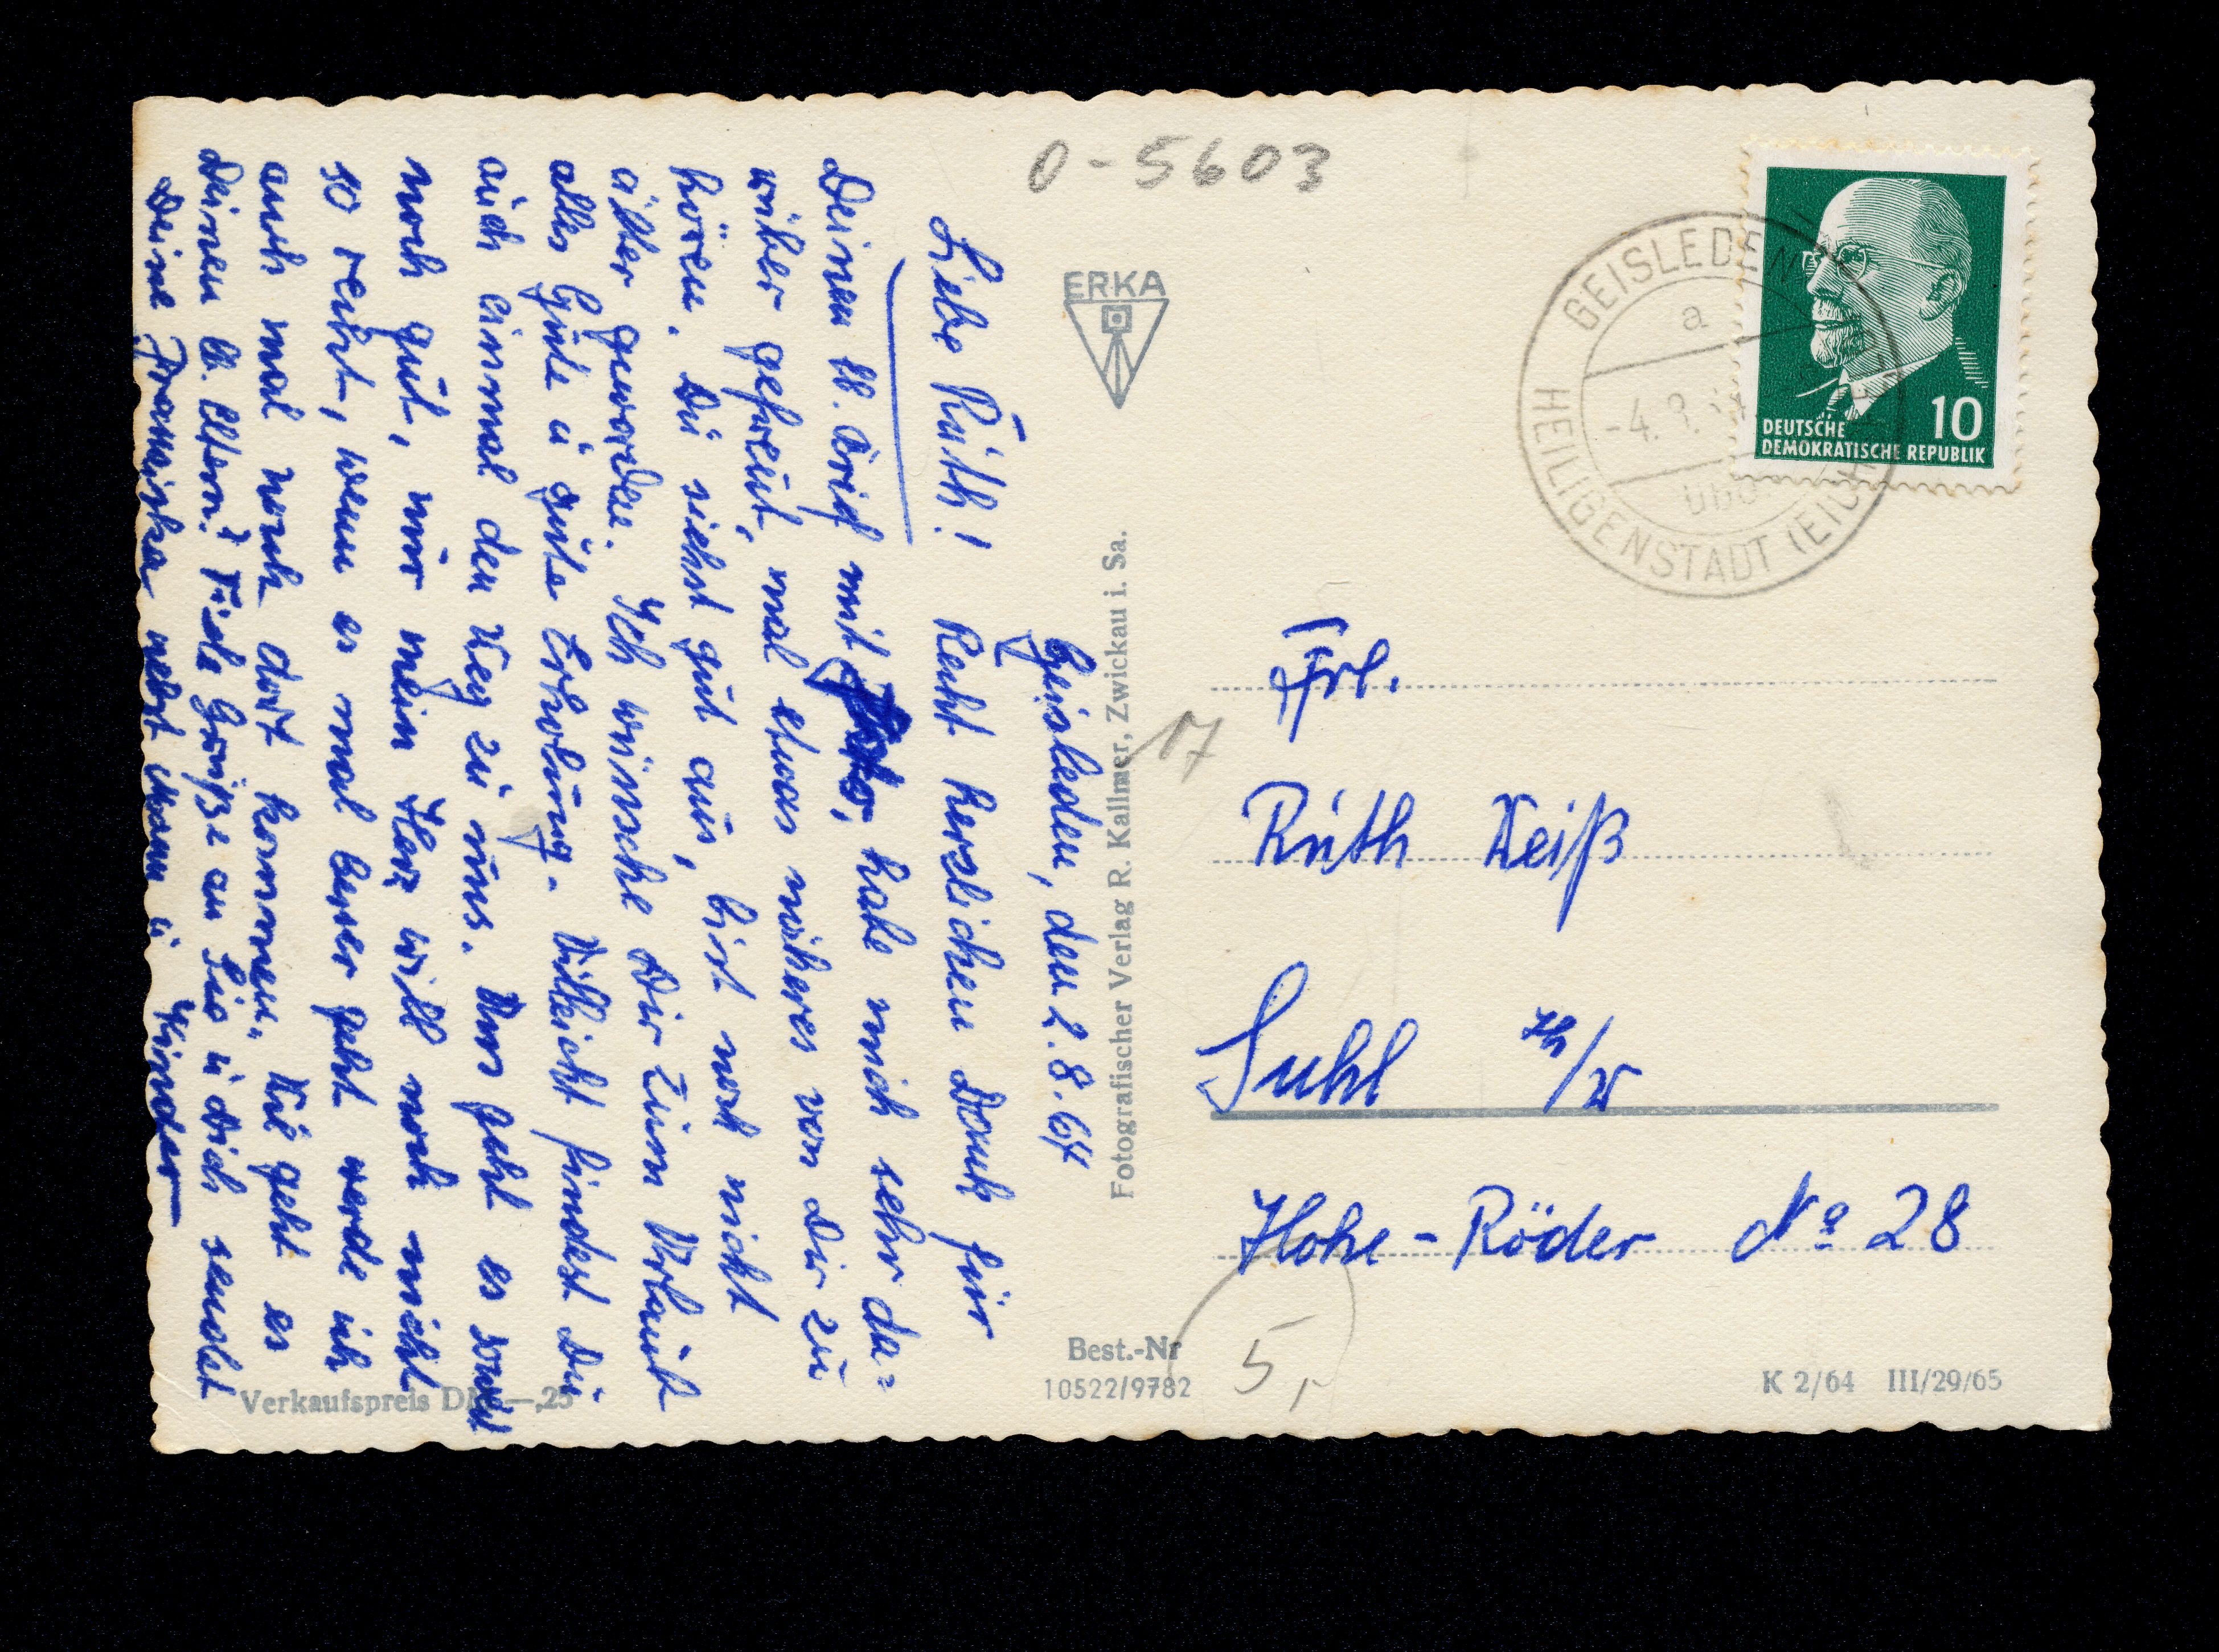 Geisleden, den 2.8.64
Liebe Ruth! Recht herzlichen Dank für
Deinen lb. Brief mit Foto, habe mich sehr da=
rüber gefreut, mal etwas näheres von Dir zu
hören. Du siehst gut aus, bist noch nicht
älter geworden. Ich wünsche Dir zum Urlaub
alles Gute u gute Erholung. Vielleicht findest Du
auch einmal den Weg zu uns. Uns geht es soweit
noch gut, nur mein Herz will noch nicht
so recht, wenn es mal besser geht werde ich
auch mal noch dort kommen. Wie geht es
Deinen lb. Eltern? Viele Grüße an Sie u Dich sendet
Deine Franziska nebst Mann u Kinder
Verkaufspreis DM —,25
0-5603
ERKA
Fotografischer Verlag R. Kallmer, Zwickau i. Sa.
17
Best.-Nr
10522/9782
GEISLEDEN
a
-4. 8. 64.
über
HEILIGENSTADT (EICHSFELD)
10
DEUTSCHE
DEMOKRATISCHE REPUBLIK
Frl.
Ruth Weiß
Suhl Th/W
Hohe-Röder No 28
5,-
K 2/64 III/29/65